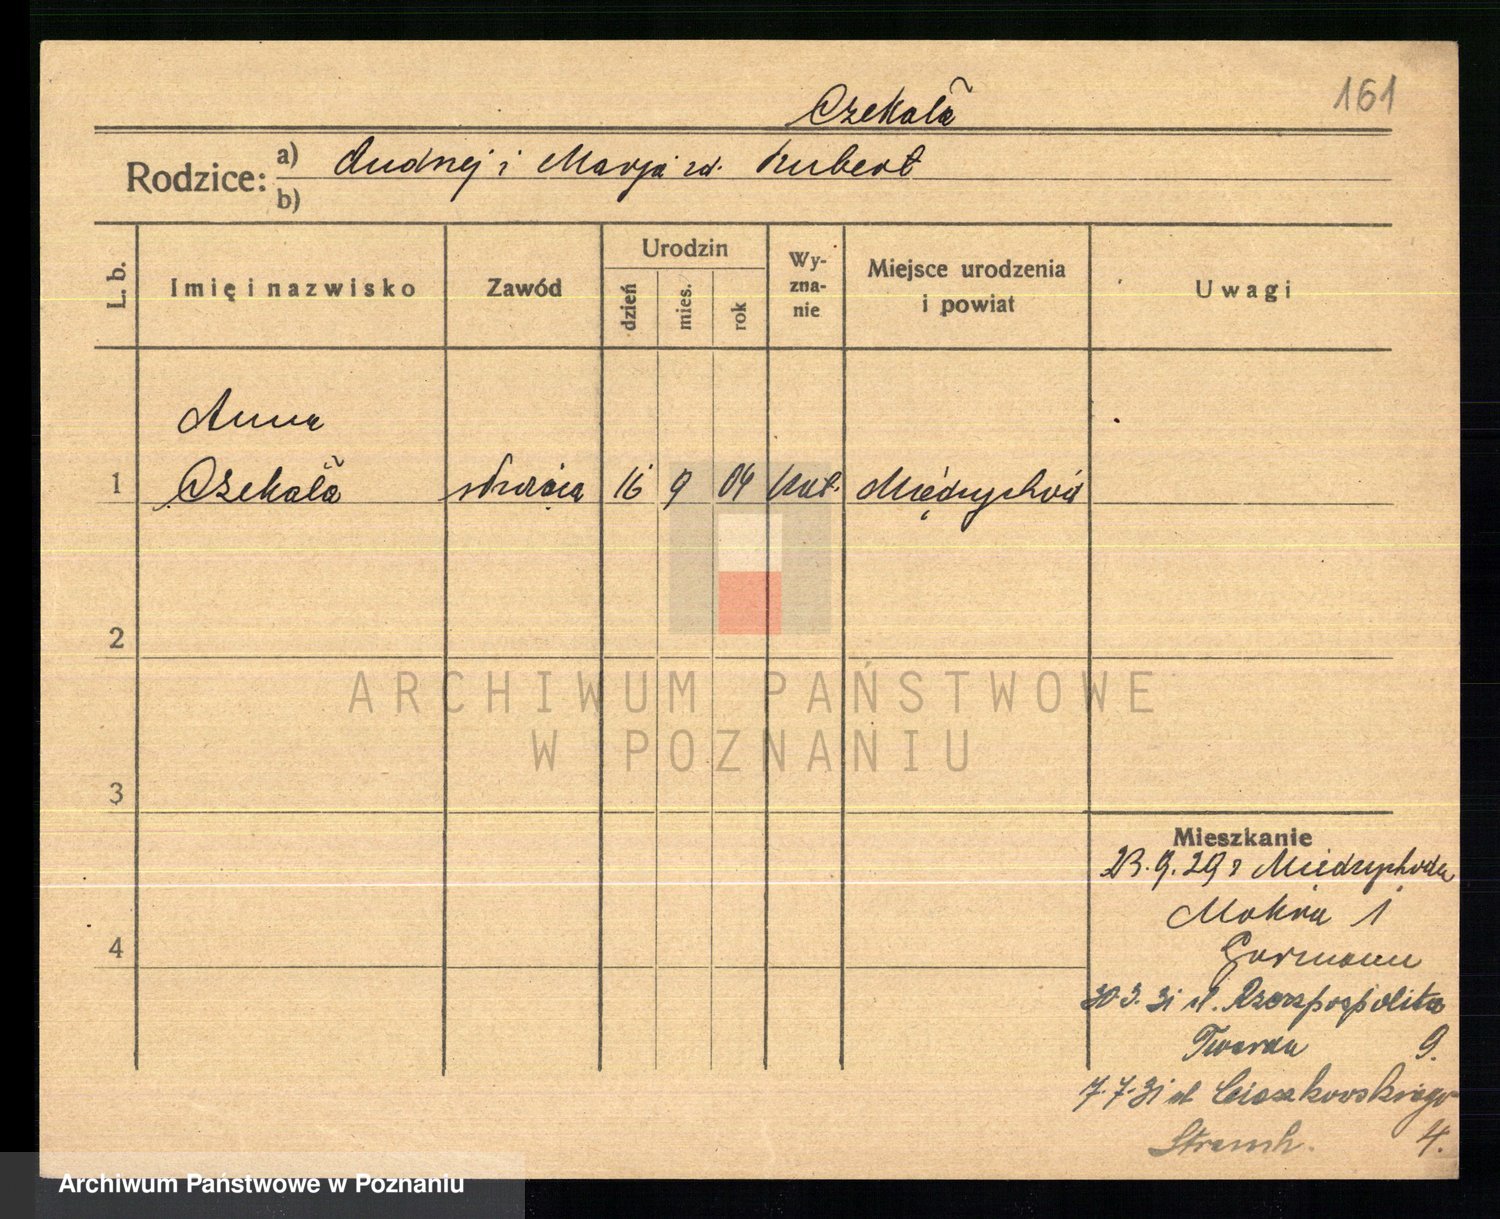 161
Czekała
Rodzice: a) Andrzej i Marja zd. Kubert
b)
L. b.
Imię i nazwisko
Zawód
Urodzin
dzień
mies.
rok
Wy-
zna-
nie
Miejsce urodzenia
i powiat
Uwagi
Anna
1 Czekała służąca 16 9 04 kat. Międzychód
2
ARCHIWUM PAŃSTWOWE
W POZNANIU
3
Mieszkanie
23.9.29 z Międzychoda
4
Mokra 1
30.3.31 ul.
Twarda 9.
7.7.31 ul. Cieszkowskiego
4.
Archiwum Państwowe w Poznaniu